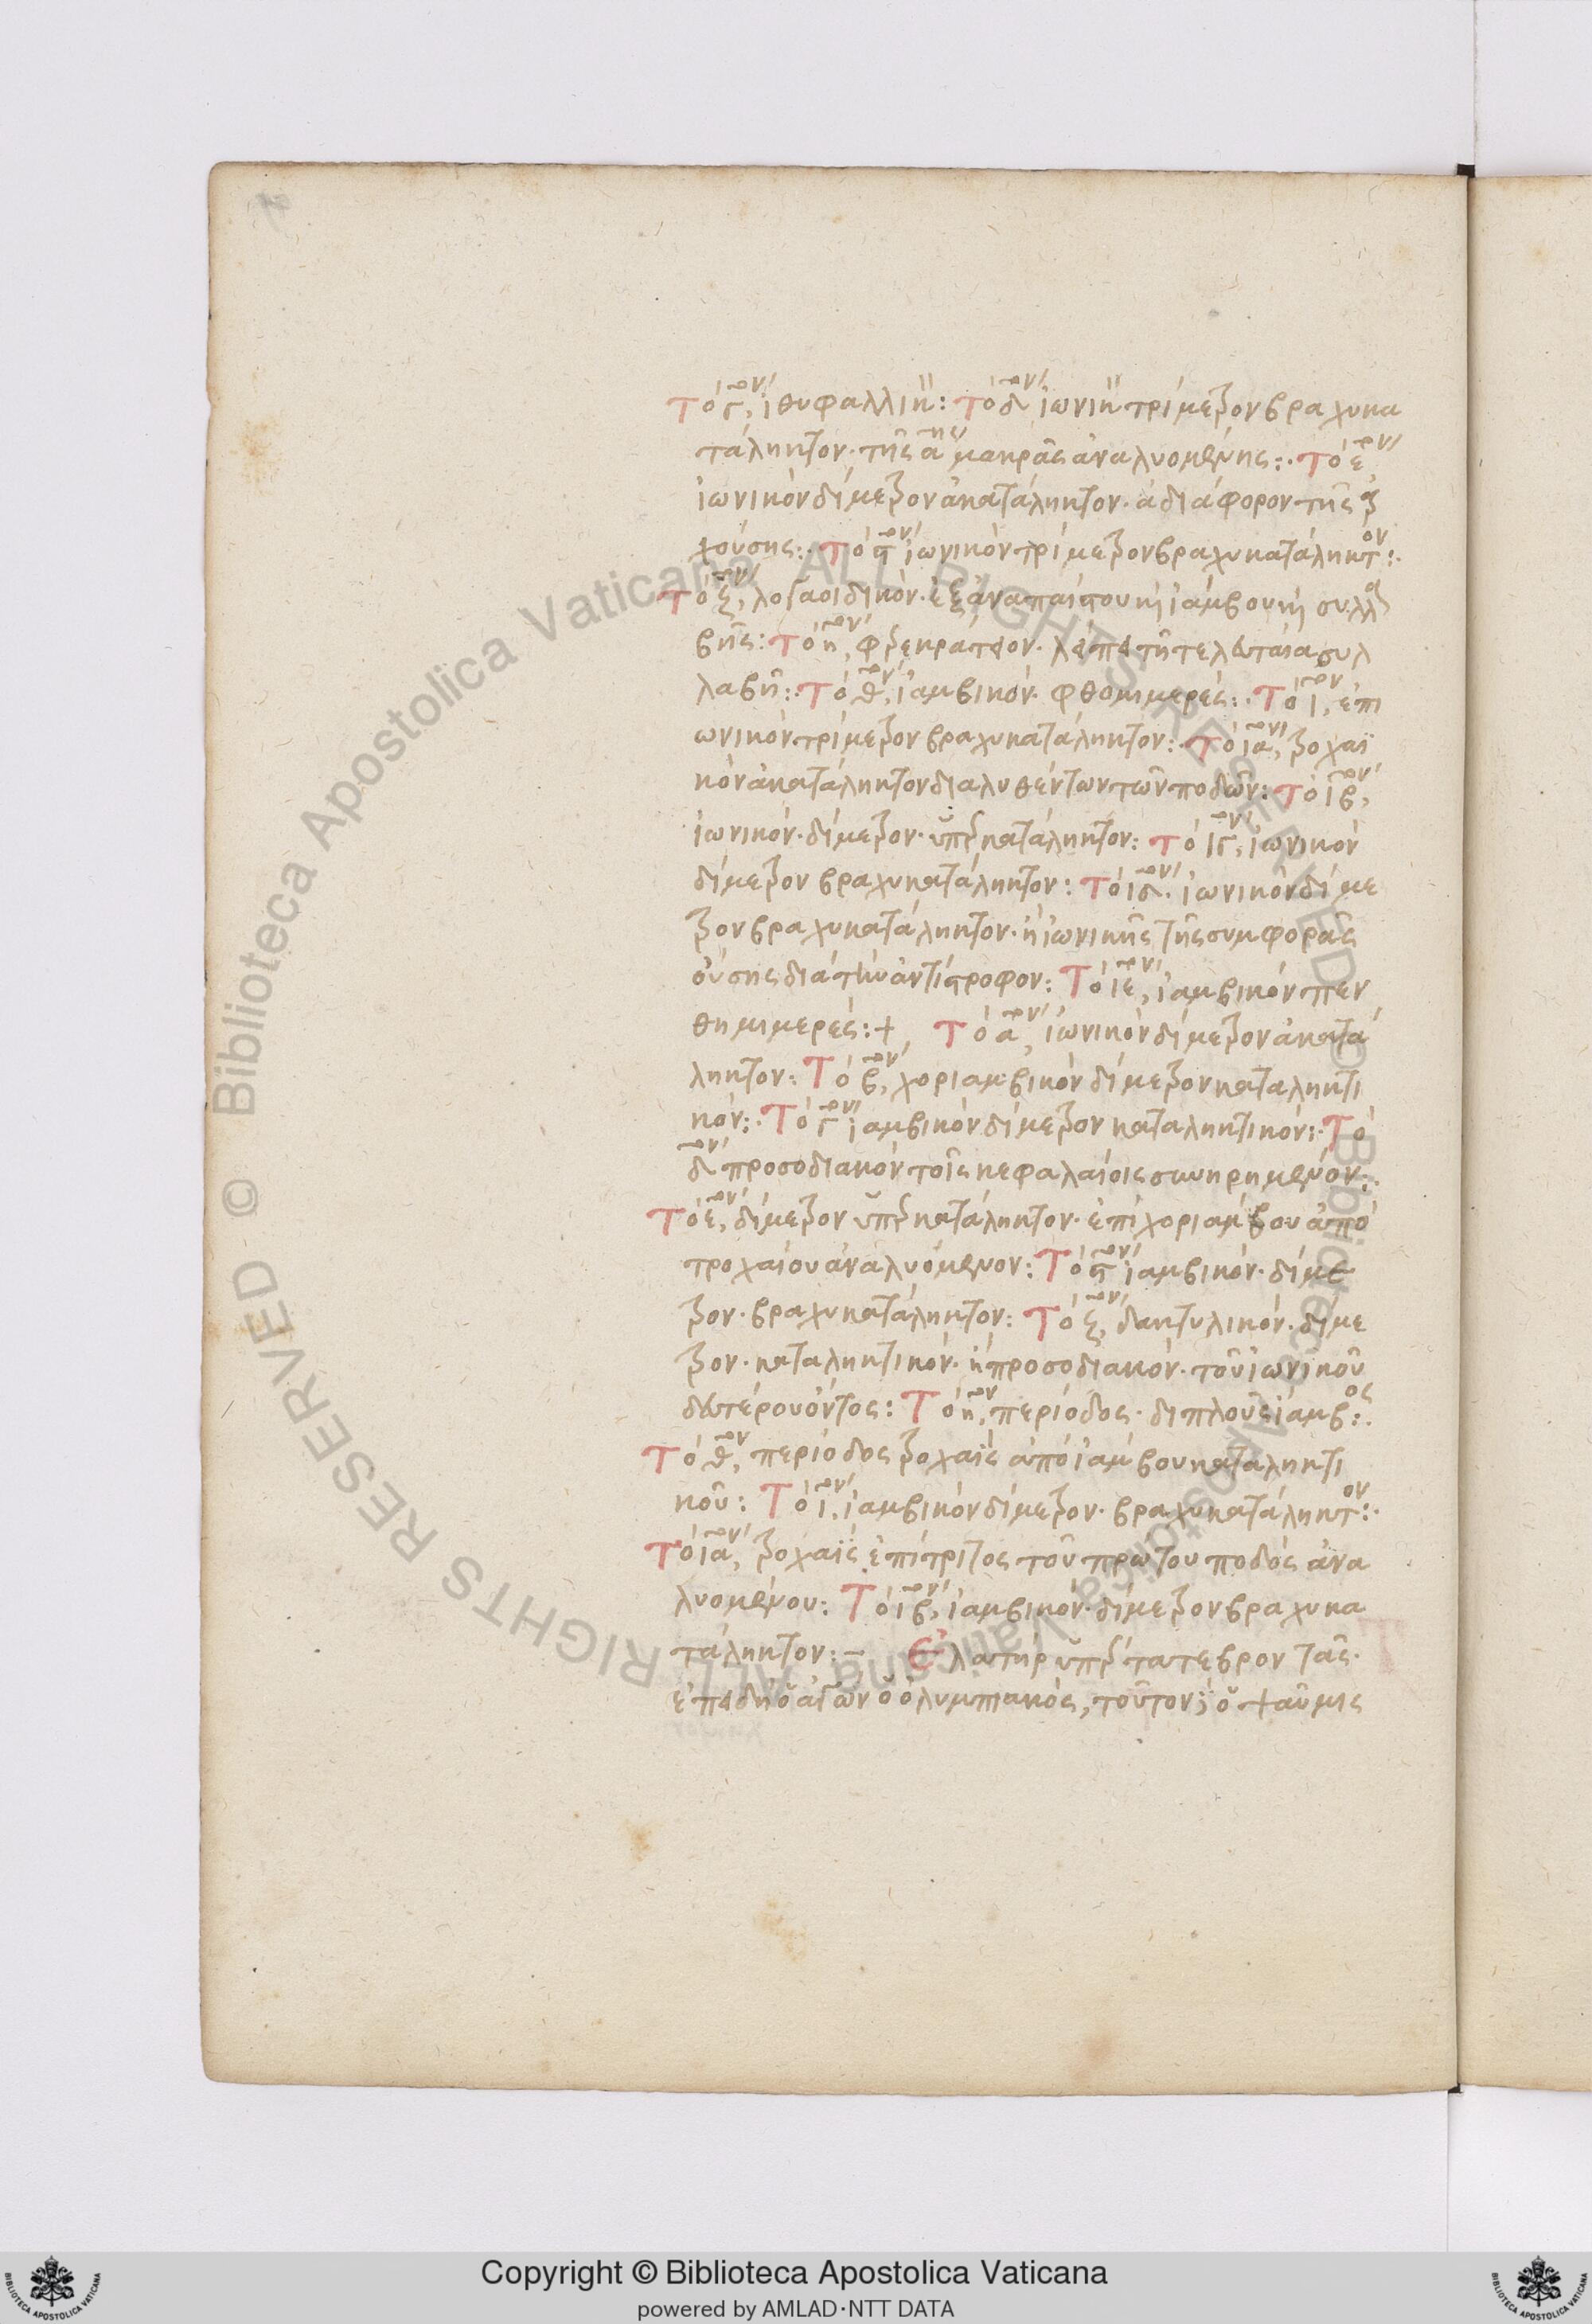 Τὸ γ̅ον, ἰθυφαλλικ: Τὸ δ̅ον ἰωνικ τρίμετρον βραχυκα
τάληκτον· τῆς α̅ης μακρᾶς ἀναλυομένης: · Τὸ ε̅ον,
ἰωνικὸν δίμετρον ἀκατάληκτον· ἀδιάφορον τῆς τρ
χούσης: · Τὸ ϛ̅ον ἰωνικὸν τρίμετρον βραχυκατάληκτον: ·
Τὸ ζ̅ον, λογαοιδικὸν· ἐξ ἀναπαίστου κὶ ἰάμβου κὶ συλλα
βῆς: Τὸ η̅ον, φρεκράτειον· λείπει τῆ τελευταία συλ
λαβῆ: · Τὸ θ̅ον, ἰαμβικὸν· φθημιμερές: · Τὸ ι̅ον, ἐπι
ωνικὸν τρίμετρον βραχυκατάληκτον: · Τὸ ια̅ον, τροχαϊ
κὸν ἀκατάληκτον διαλυθέντων τῶν ποδῶν: Τὸ ιβ̅ον,
ἰωνικόν· δίμετρον· ὑπρκατάληκτον: Τὸ ιγ̅ον, ἰωνικὸν
δίμετρον βραχυκατάληκτον: Τὸ ιδ̅ον· ἰωνικὸν δίμε
τρον βραχυκατάληκτον· ἢ ἰωνικῆς τῆς συμφορᾶς
οὔσης διὰ τὴν ἀντίστροφον: Τὸ ιε̅ον, ἰαμβικὸν πεν
θημιμερές: + Τὸ α̅ον, ἰωνικὸν δίμετρον ἀκατά
ληκτον: Τὸ β̅ον, χοριαμβικὸν δίμετρον καταληκτι
κόν: · Τὸ γ̅ον ἰαμβικὸν δίμετρον καταληκτικόν: · Τὸ
δ̅ον προσοδιακὸν τοῖς κεφαλαίοις συνηρημένον: ·
Τὸ ε̅ον, δίμετρον ὑπρκατάληκτον· ἐπὶ χοριάμβου ἀπὸ
τροχαίου ἀναλυόμενον: Τὸ ϛ̅ον ἰαμβικόν· δίμε
τρον· βραχυκατάληκτον: Τὸ ζ̅ον, δακτυλικόν· δίμε
τρον· καταληκτικόν· ἢ προσοδιακόν· τοῦ ἰωνικοῦ
δευτέρου ὄντος: Τὸ η̅ον, περίοδος· διπλοῦς ἰαμβος: ·
Τὸ θ̅ον, περίοδος τροχαϊὲ ἀπὸ ἰάμβου καταληκτι
κοῦ: Τὸ ι̅ον, ἰαμβικὸν δίμετρον· βραχυκατάληκτον: ·
Τὸ ια̅ον, τροχαϊὲ ἐπίτριτος τοῦ πρώτου ποδὸς ἀνα
λυομένου: Τὸ ιβ̅ον, ἰαμβικόν· δίμετρον βραχυκα
τάληκτον: – Ἐλατὴρ ὑπρτατε βροντᾶς·
ἐπειδὴ ὁ ἀγὼν ὁ ὀλυμπιακὸς, τοῦτον; ὁ ψαῦμις